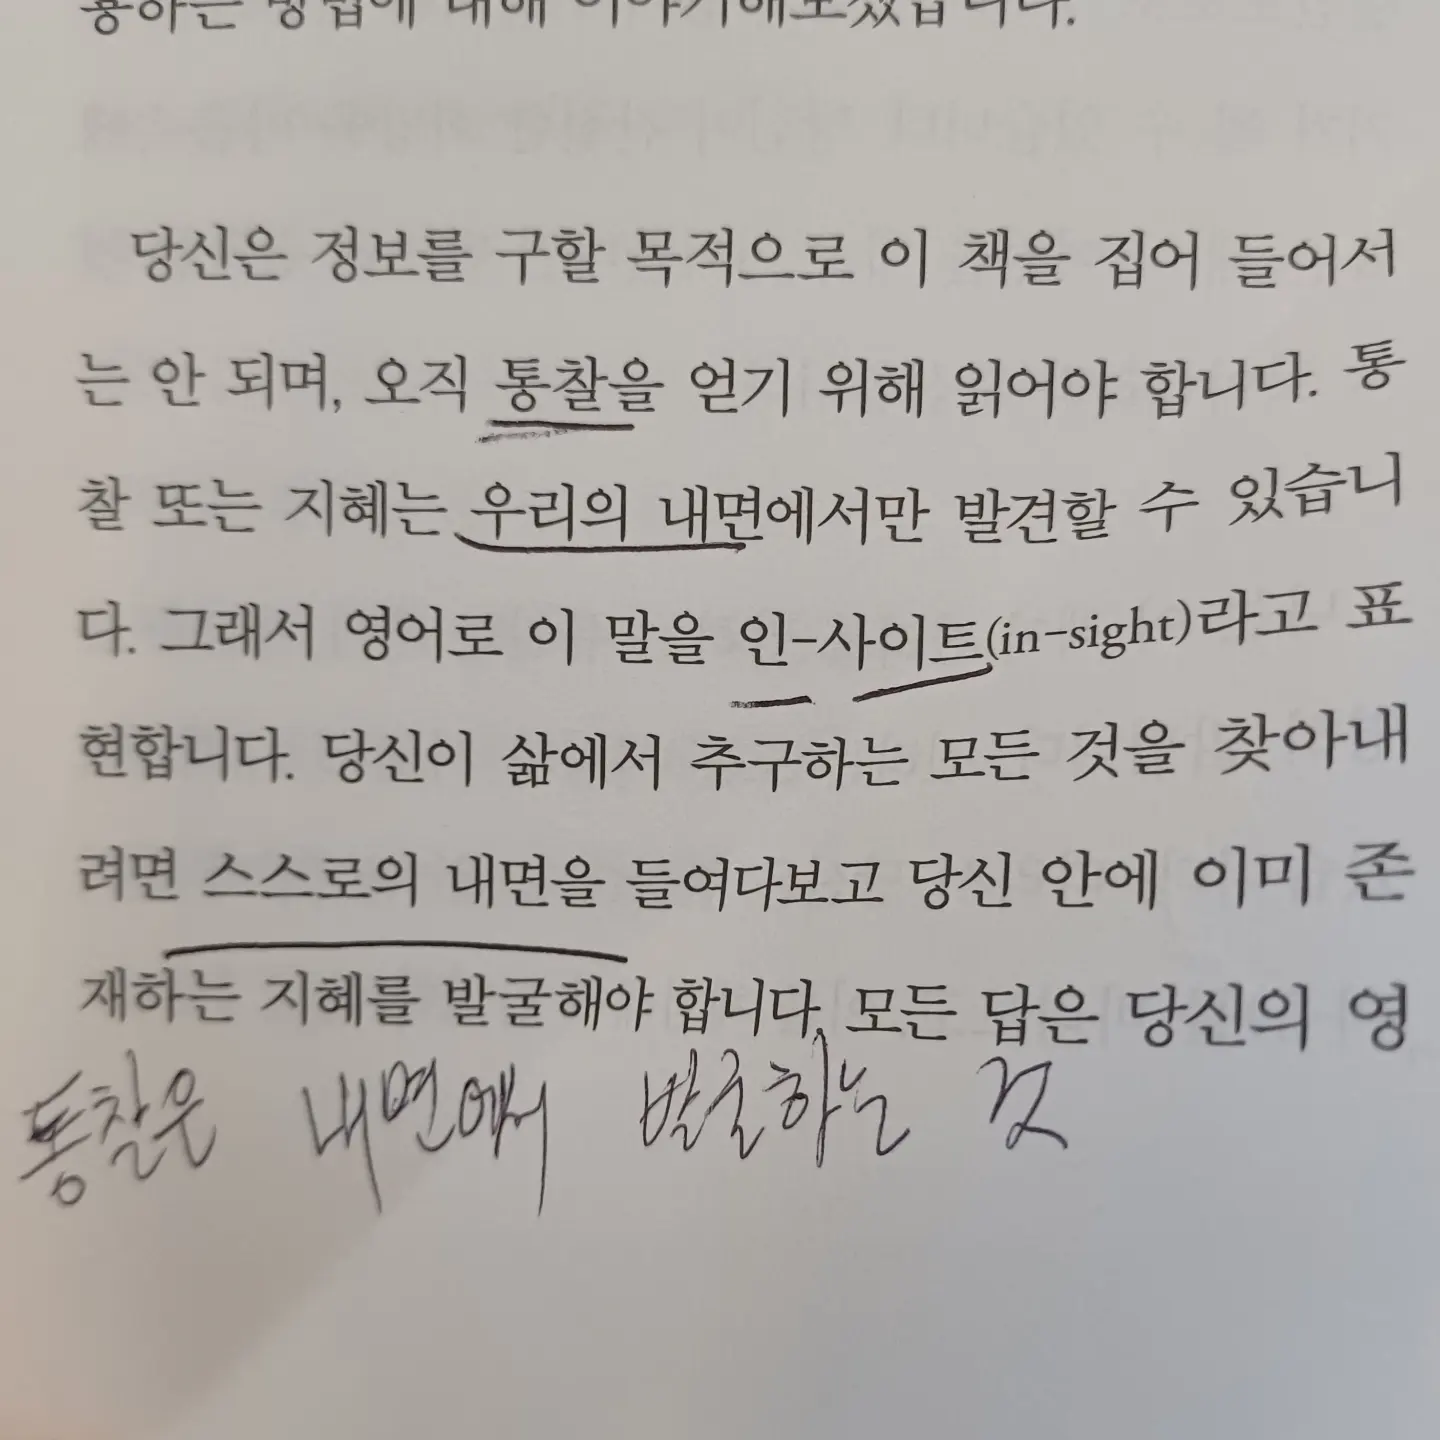 용하는 방법에 대해 이야기해보겠습니다.
당신은 정보를 구할 목적으로 이 책을 집어 들어서
는 안 되며, 오직 통찰을 얻기 위해 읽어야 합니다. 통
찰 또는 지혜는 우리의 내면에서만 발견할 수 있습니
다. 그래서 영어로 이 말을 인-사이트(in-sight)라고 표
현합니다. 당신이 삶에서 추구하는 모든 것을 찾아내
려면 스스로의 내면을 들여다보고 당신 안에 이미 존
재하는 지혜를 발굴해야 합니다. 모든 답은 당신의 영
통찰은 내면에서 발굴하는 것